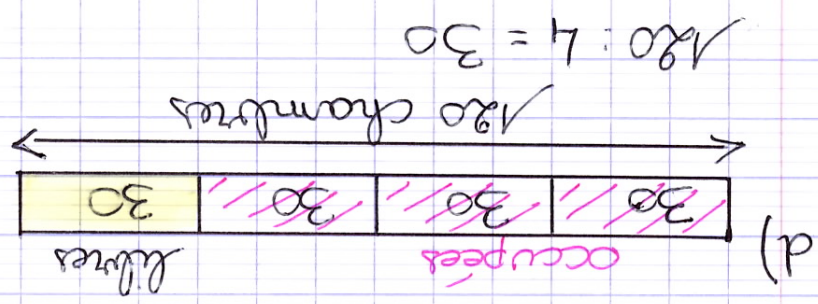 d)
occupées libres
30 30 30 30
120 chambres
120 : 4 = 30